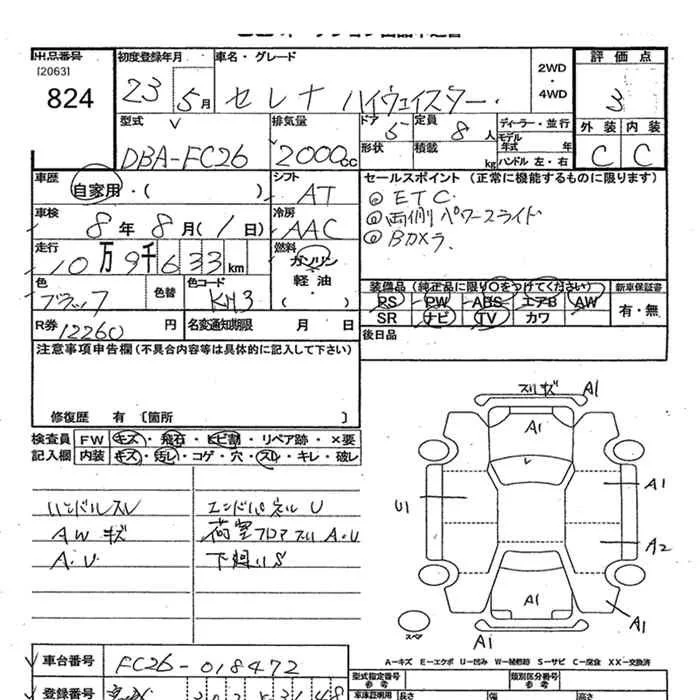 出品番号
[2063]
824
初度登録年月
23 5月
車名・グレード
セレナ ハイウェイスター
2WD
・
4WD
評価点
3
外装 内装
C C
型式
DBA-FC26
排気量
2000cc
ドア
5
定員
8人
形状
積載
kg
ディーラー・並行
モデル
年式 年
ハンドル 左・右
車歴
自家用・( )
シフト
AT
セールスポイント (正常に機能するものに限ります)
◎ETC
◎両側パワースライド
◎Bカメラ
車検
8年 8月(1日)
冷房
AAC
走行
10万9千633km
燃料
ガソリン
軽油
・( )
色
ブラック
色替
色コード
KH3
装備品 (純正品に限り○をつけてください)
PS PW ABS エアB AW
SR ナビ TV カワ
新車保証書
有・無
R券 12260円
名変通知期限 月 日
後日品
注意事項申告欄(不具合内容等は具体的に記入して下さい)
修復歴 有 〔箇所 〕
検査員
記入欄
FW キズ・飛石・トビ割・リペア跡・×要
内装 キズ・汚レ・コゲ・穴・スレ・キレ・破レ
ハンドルスレ
AWキズ
A・U
エンドパネルU
荷室フロアスレ A・U
下廻りS
スリキズ A1
A1
A1
U1
A2
A1
A1
A1
スペア
A…キズ E…エクボ U…凹み W…補修跡 S…サビ C…腐食 XX…交換済
車台番号
FC26-018472
登録番号
型式指定番号
参考
類別区分番号
参考
車庫証明用
長さ
幅
高さ